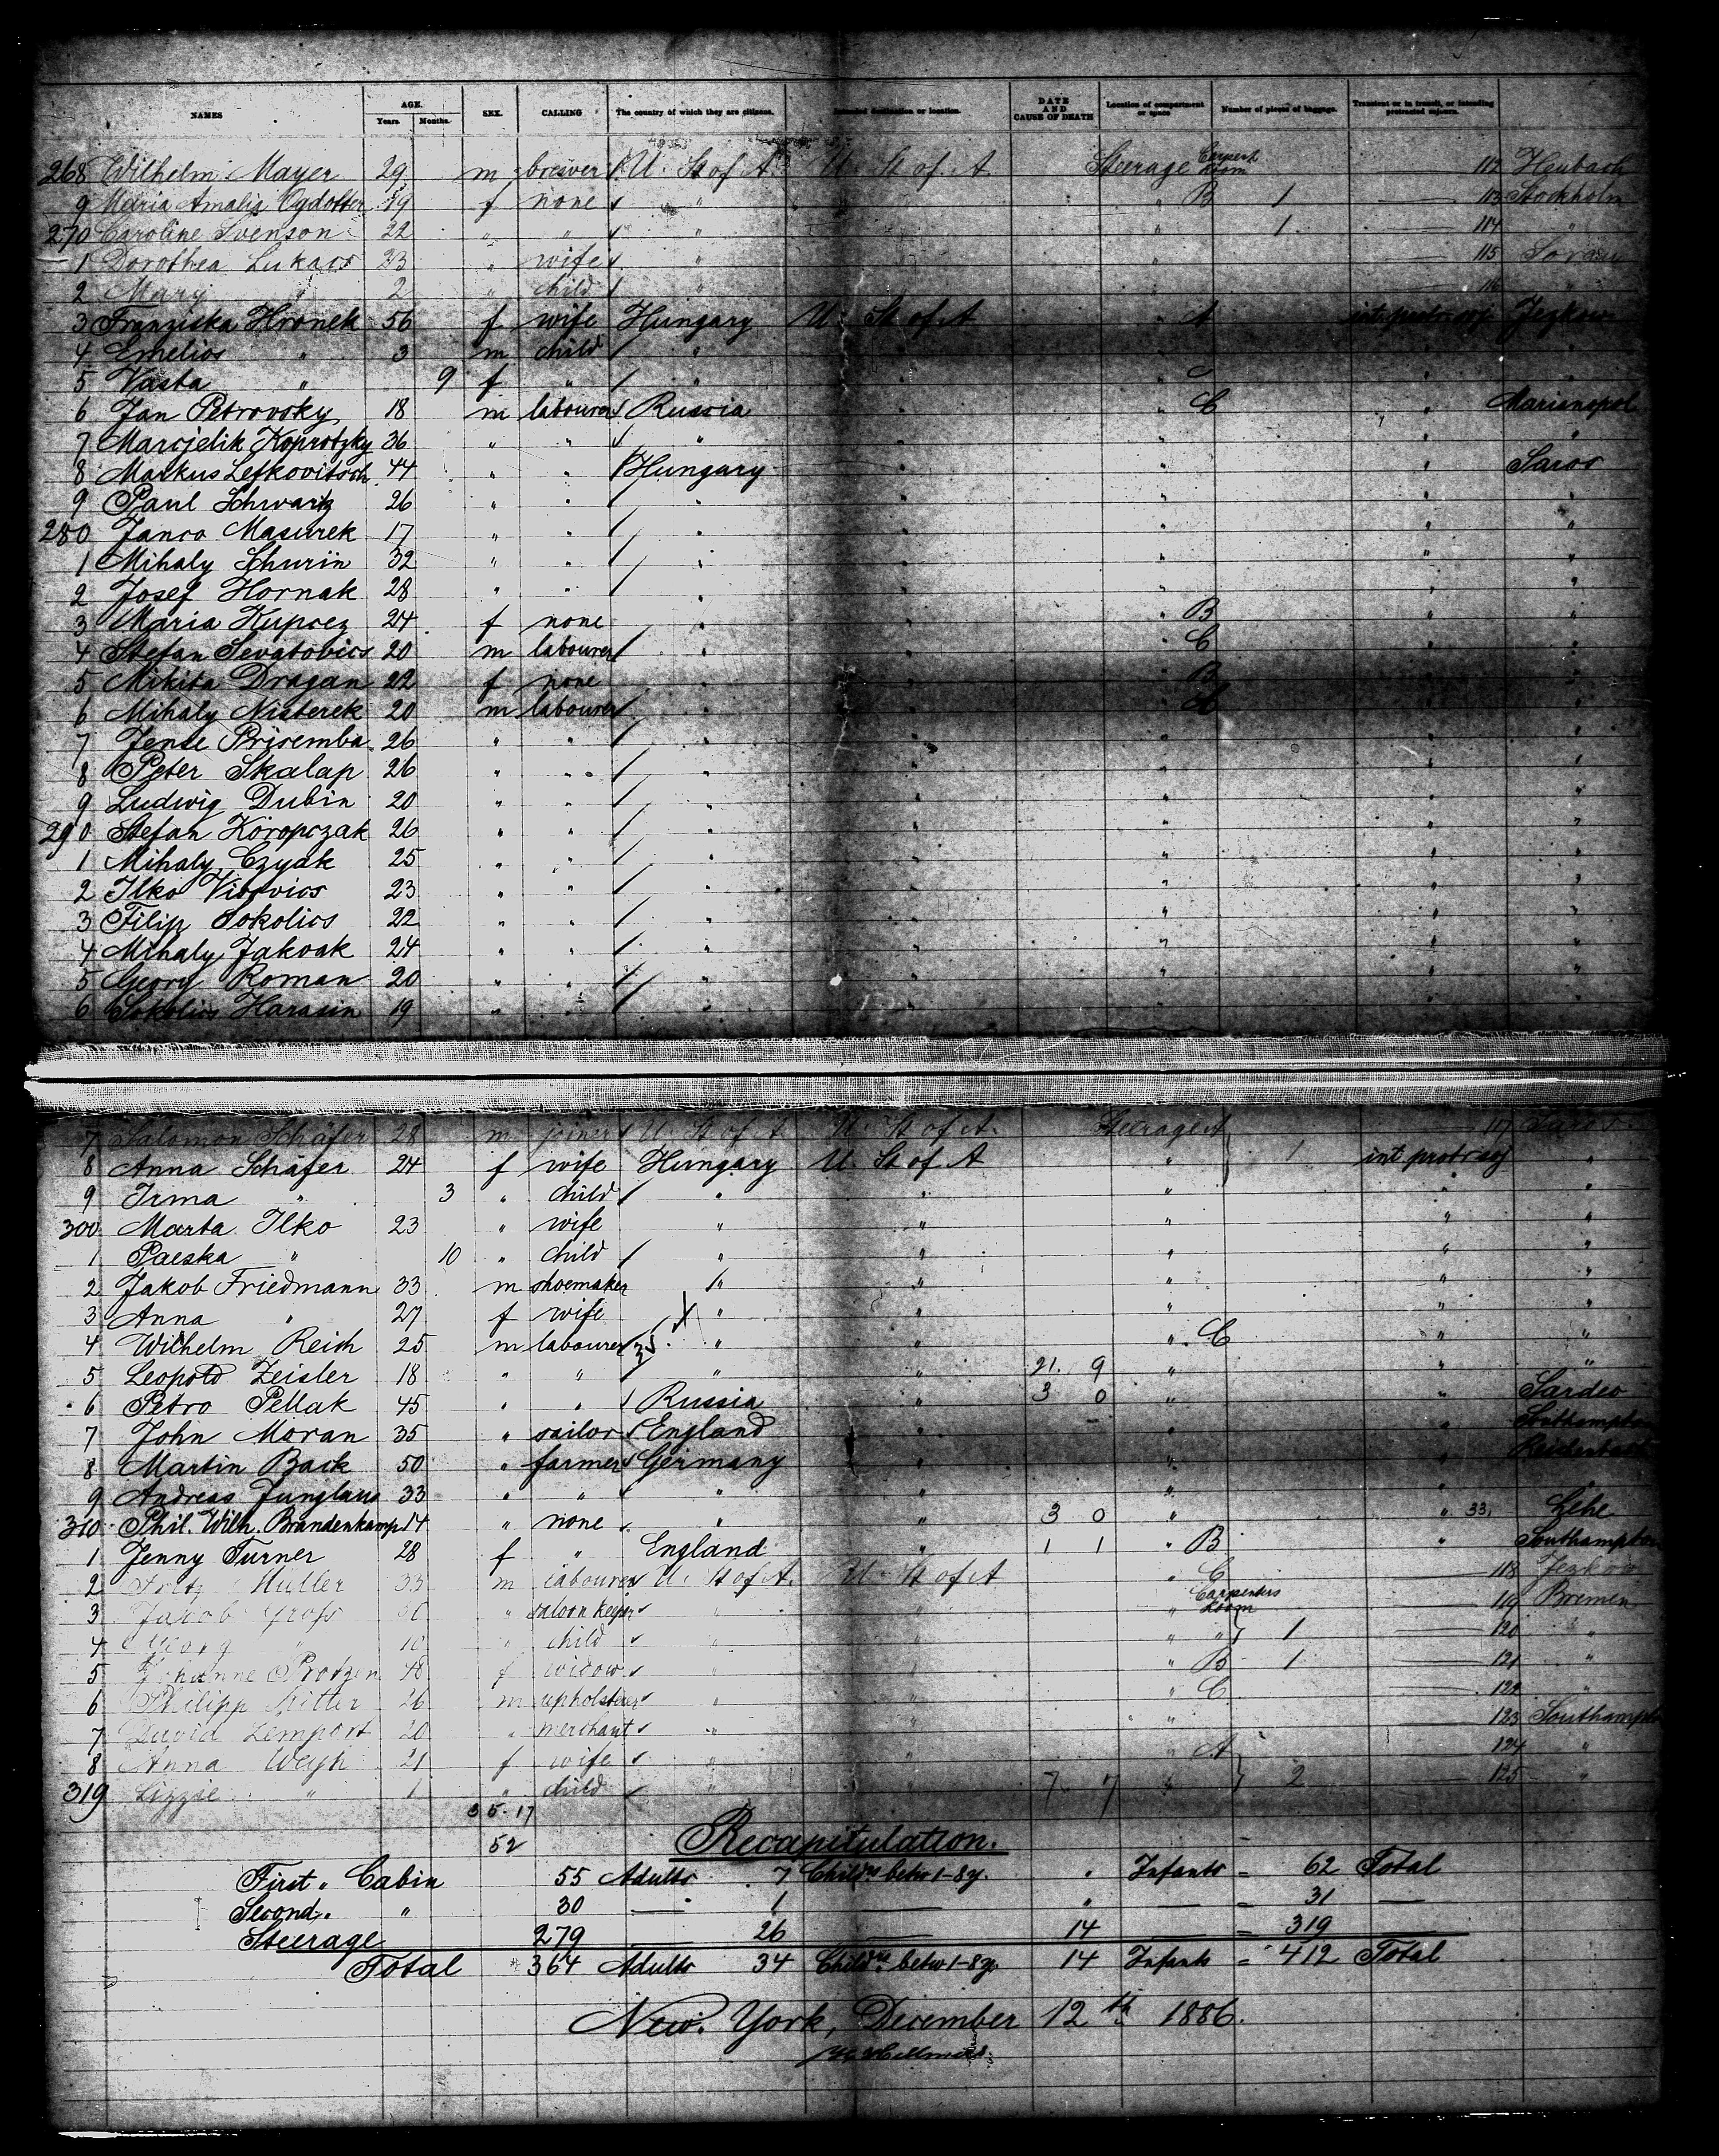 NAMES AGE. Years. Months. SEX. CALLING The country of which they are citizens. Intended destination or location. DATE AND CAUSE OF DEATH Location of compartment or space Number of pieces of baggage. Transient or in transit, or intending protracted sojourn.
268 Wilhelm Mayer 29 m brewer U. St of A. U. St of A Steerage Carpent. Room 112 Heubach
9 Maria Amalia Ogdotter 19 f none " " B 1 113 Stockholm
270 Caroline Svenson 22 " " " " 1 114 "
1 Dorothea Lukacs 23 " wife " " 115 Sorau
2 Mary " 2 " child " " 116 "
3 Franziska Hronek 56 f wife Hungary U. St of A " A int protr soj Jezkow
4 Emelios " 3 m child " " " "
5 Vasta " 9 f " " " " "
6 Jan Petrovsky 18 m labourer Russia " " C " Marianopol
7 Marcjelik Koprotzky 36 " " " " " " "
8 Markus Lefkovitsch 44 " " Hungary " " " Saros
9 Paul Schwartz 26 " " " " " " "
280 Janco Masurek 17 " " " " " " "
1 Mihaly Schurin 32 " " " " " " "
2 Josef Hornak 28 " " " " " " "
3 Maria Kupcez 24 f none " " " B " "
4 Stefan Sevatovics 20 m labourer " " " C " "
5 Mikita Dragan 22 f none " " " B " "
6 Mihaly Nisterek 20 m labourer " " " C " "
7 Jente Prisemba 26 " " " " " " "
8 Peter Skalap 26 " " " " " " "
9 Ludwig Dubin 20 " " " " " " "
290 Stefan Koropczak 26 " " " " " " "
1 Mihaly Czyak 25 " " " " " " "
2 Ilko Viosvios 23 " " " " " " "
3 Filip Sokolics 22 " " " " " " "
4 Mihaly Jakoak 24 " " " " " " "
5 Georg Roman 20 " " " " " " "
6 Sokolics Harasin 19 " " " " " " "
7 Salomon Schäfer 28 m joiner U. St of A U. St of A. Steerage A 117 Saros
8 Anna Schäfer 24 f wife Hungary U. St of A " 1 int protr soj "
9 Irma " 3 " child " " " " "
300 Marta Ilko 23 " wife " " " " "
1 Paeska " 10 " child " " " " "
2 Jakob Friedmann 33 m shoemaker " " " " "
3 Anna " 27 f wife " " " " "
4 Wilhelm Reich 25 m labourer " " " C " "
5 Leopold Zeisler 18 " " " " 21. 9 " " "
6 Petro Pellak 45 " " Russia " 3 0 " " Sardeo
7 John Moran 35 " sailor England " " " Southampton
8 Martin Back 50 " farmer Germany " " " Reidenbach
9 Andreas Junglaus 33 " " " " " " "
310 Phil. Wilh. Brandenkamp 14 " none " " 3 0 " " 33, Lehe
1 Jenny Turner 28 f " England " 1 1 " B " Southampton
2 Fritz Müller 33 m labourer U. St of A. U. St of A " C 118 Jezkow
3 Jacob Groß 30 " saloon keeper " " " Carpenters Room 119 Bremen
4 Georg " 10 " child " " " " 1 120 "
5 Johanne Protzen 48 f widow " " " B 1 121 "
6 Philipp Sitter 26 m upholsterer " " " C 122 "
7 David Lemport 20 " merchant " " " " 123 Southampton
8 Anna Weyh 21 f wife " " A 124 "
319 Lizzie " 1 " child " " 7 7 " 2 125 "
35 - 17
52 Recapitulation.
First " Cabin 55 Adults 7 Childrn betw 1-8 y. " Infants = 62 Total
Second " " 30 — 1 — " — = 31 —
Steerage 279 — 26 — 14 — = 319
Total 364 Adults 34 Childrn betw 1-8 y. 14 Infants = 412 Total
New York, December 12th 1886.